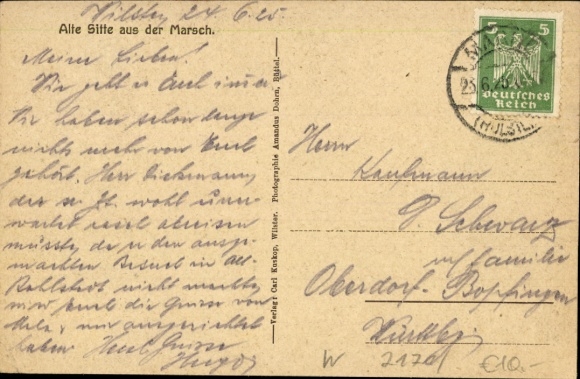 Wilster, 24.6.25.
Alte Sitte aus der Marsch.
Meine Lieben!
Wie geht es Euch immer
Wir haben schon lange
nichts mehr von Euch
gehört. Herr Dieckmann,
der zu Zt. wohl uner-
wartet rasch abreisen
musste, da er den ausge-
machten Besuch in Alt-
Rahlstedt nicht machte,
wird Euch die Grüsse von
nur ausgerichtet
haben. Herzl. Grüsse
Hugo
Verlag: Carl Kuskop, Wilster. Photographie Amandus Dohrn, Büttel.
5 5
Deutsches
Reich
(HOLST.)
Herrn
Kaufmann
P. Schwarz
u. Familie
Oberdorf-Bopfingen
Württbg.
W 2170
€10.-